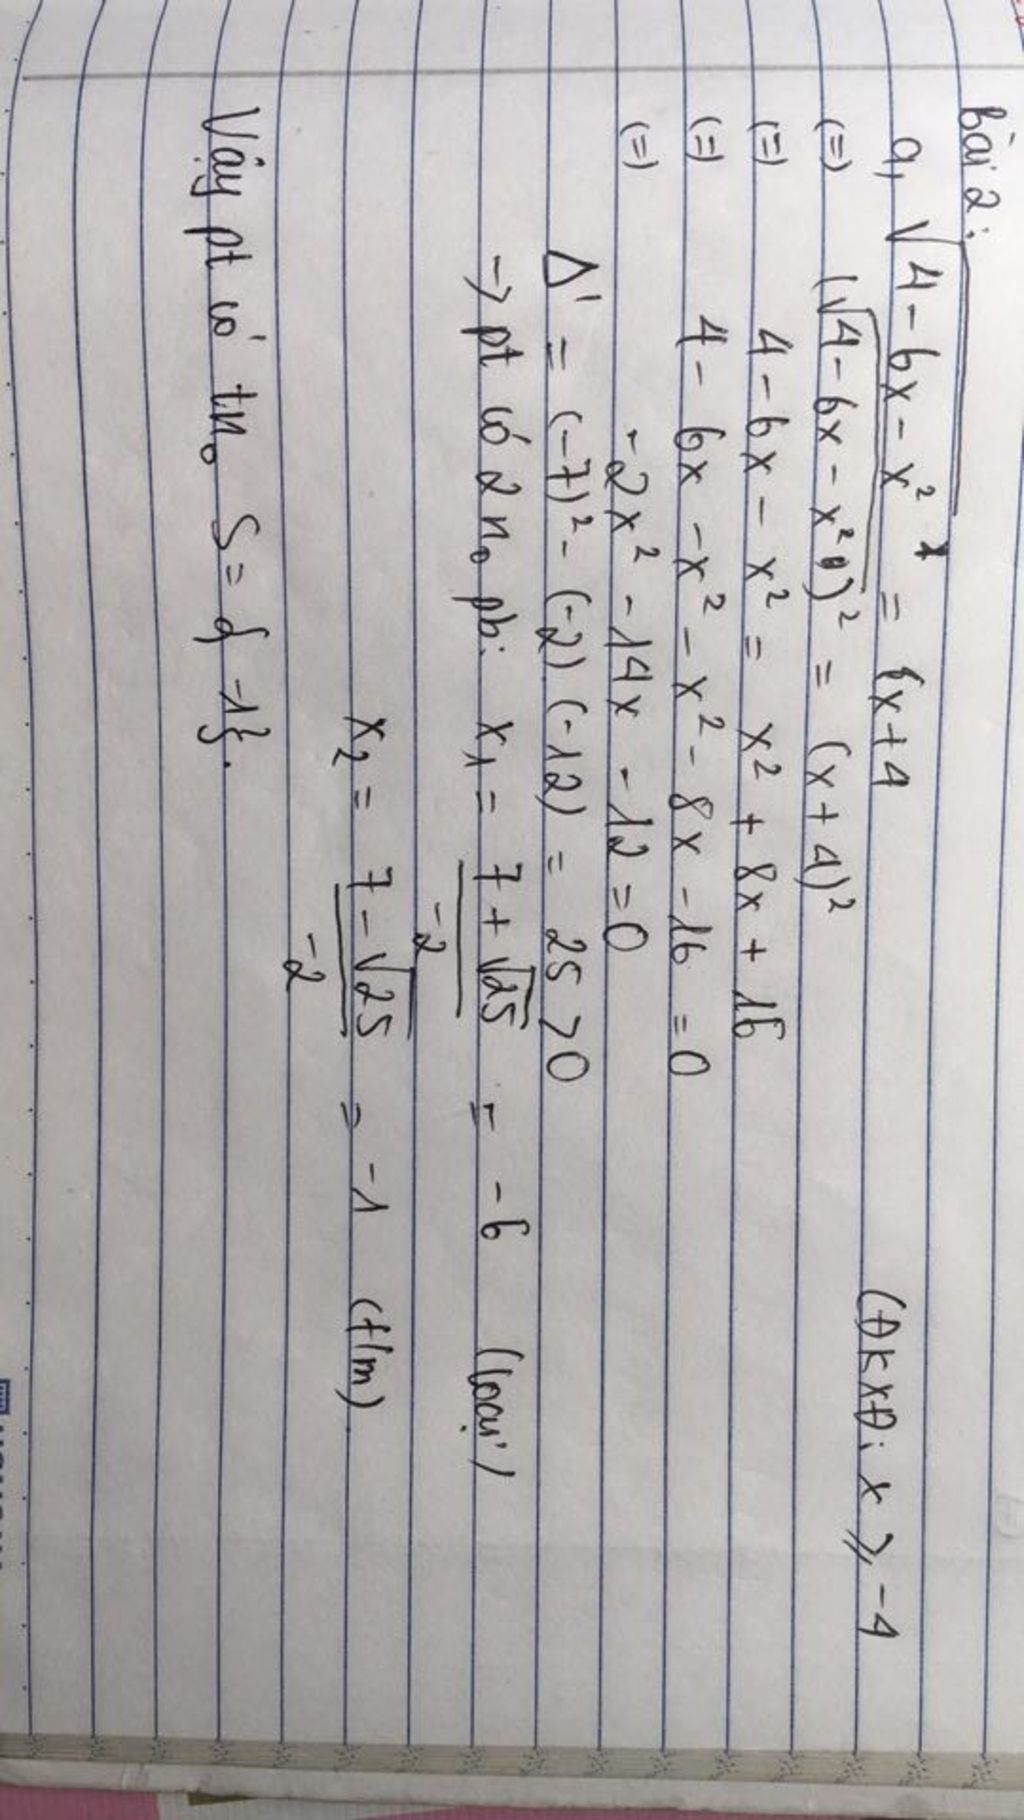 Bài 2:
a, √4 - 6x - x² = x + 4 (ĐKXĐ: x ⩾ -4
(=) (√4 - 6x - x²)² = (x + 4)²
(=) 4 - 6x - x² = x² + 8x + 16
(=) 4 - 6x - x² - x² - 8x - 16 = 0
(=) -2x² - 14x - 12 = 0
Δ' = (-7)² - (-2)(-12) = 25 > 0
-> pt có 2 n₀ pb: x₁ = 7 + √25 / -2 = -6 (loại)
x₂ = 7 - √25 / -2 = -1 (t/m)
Vây pt có tn₀ S = { -1}.